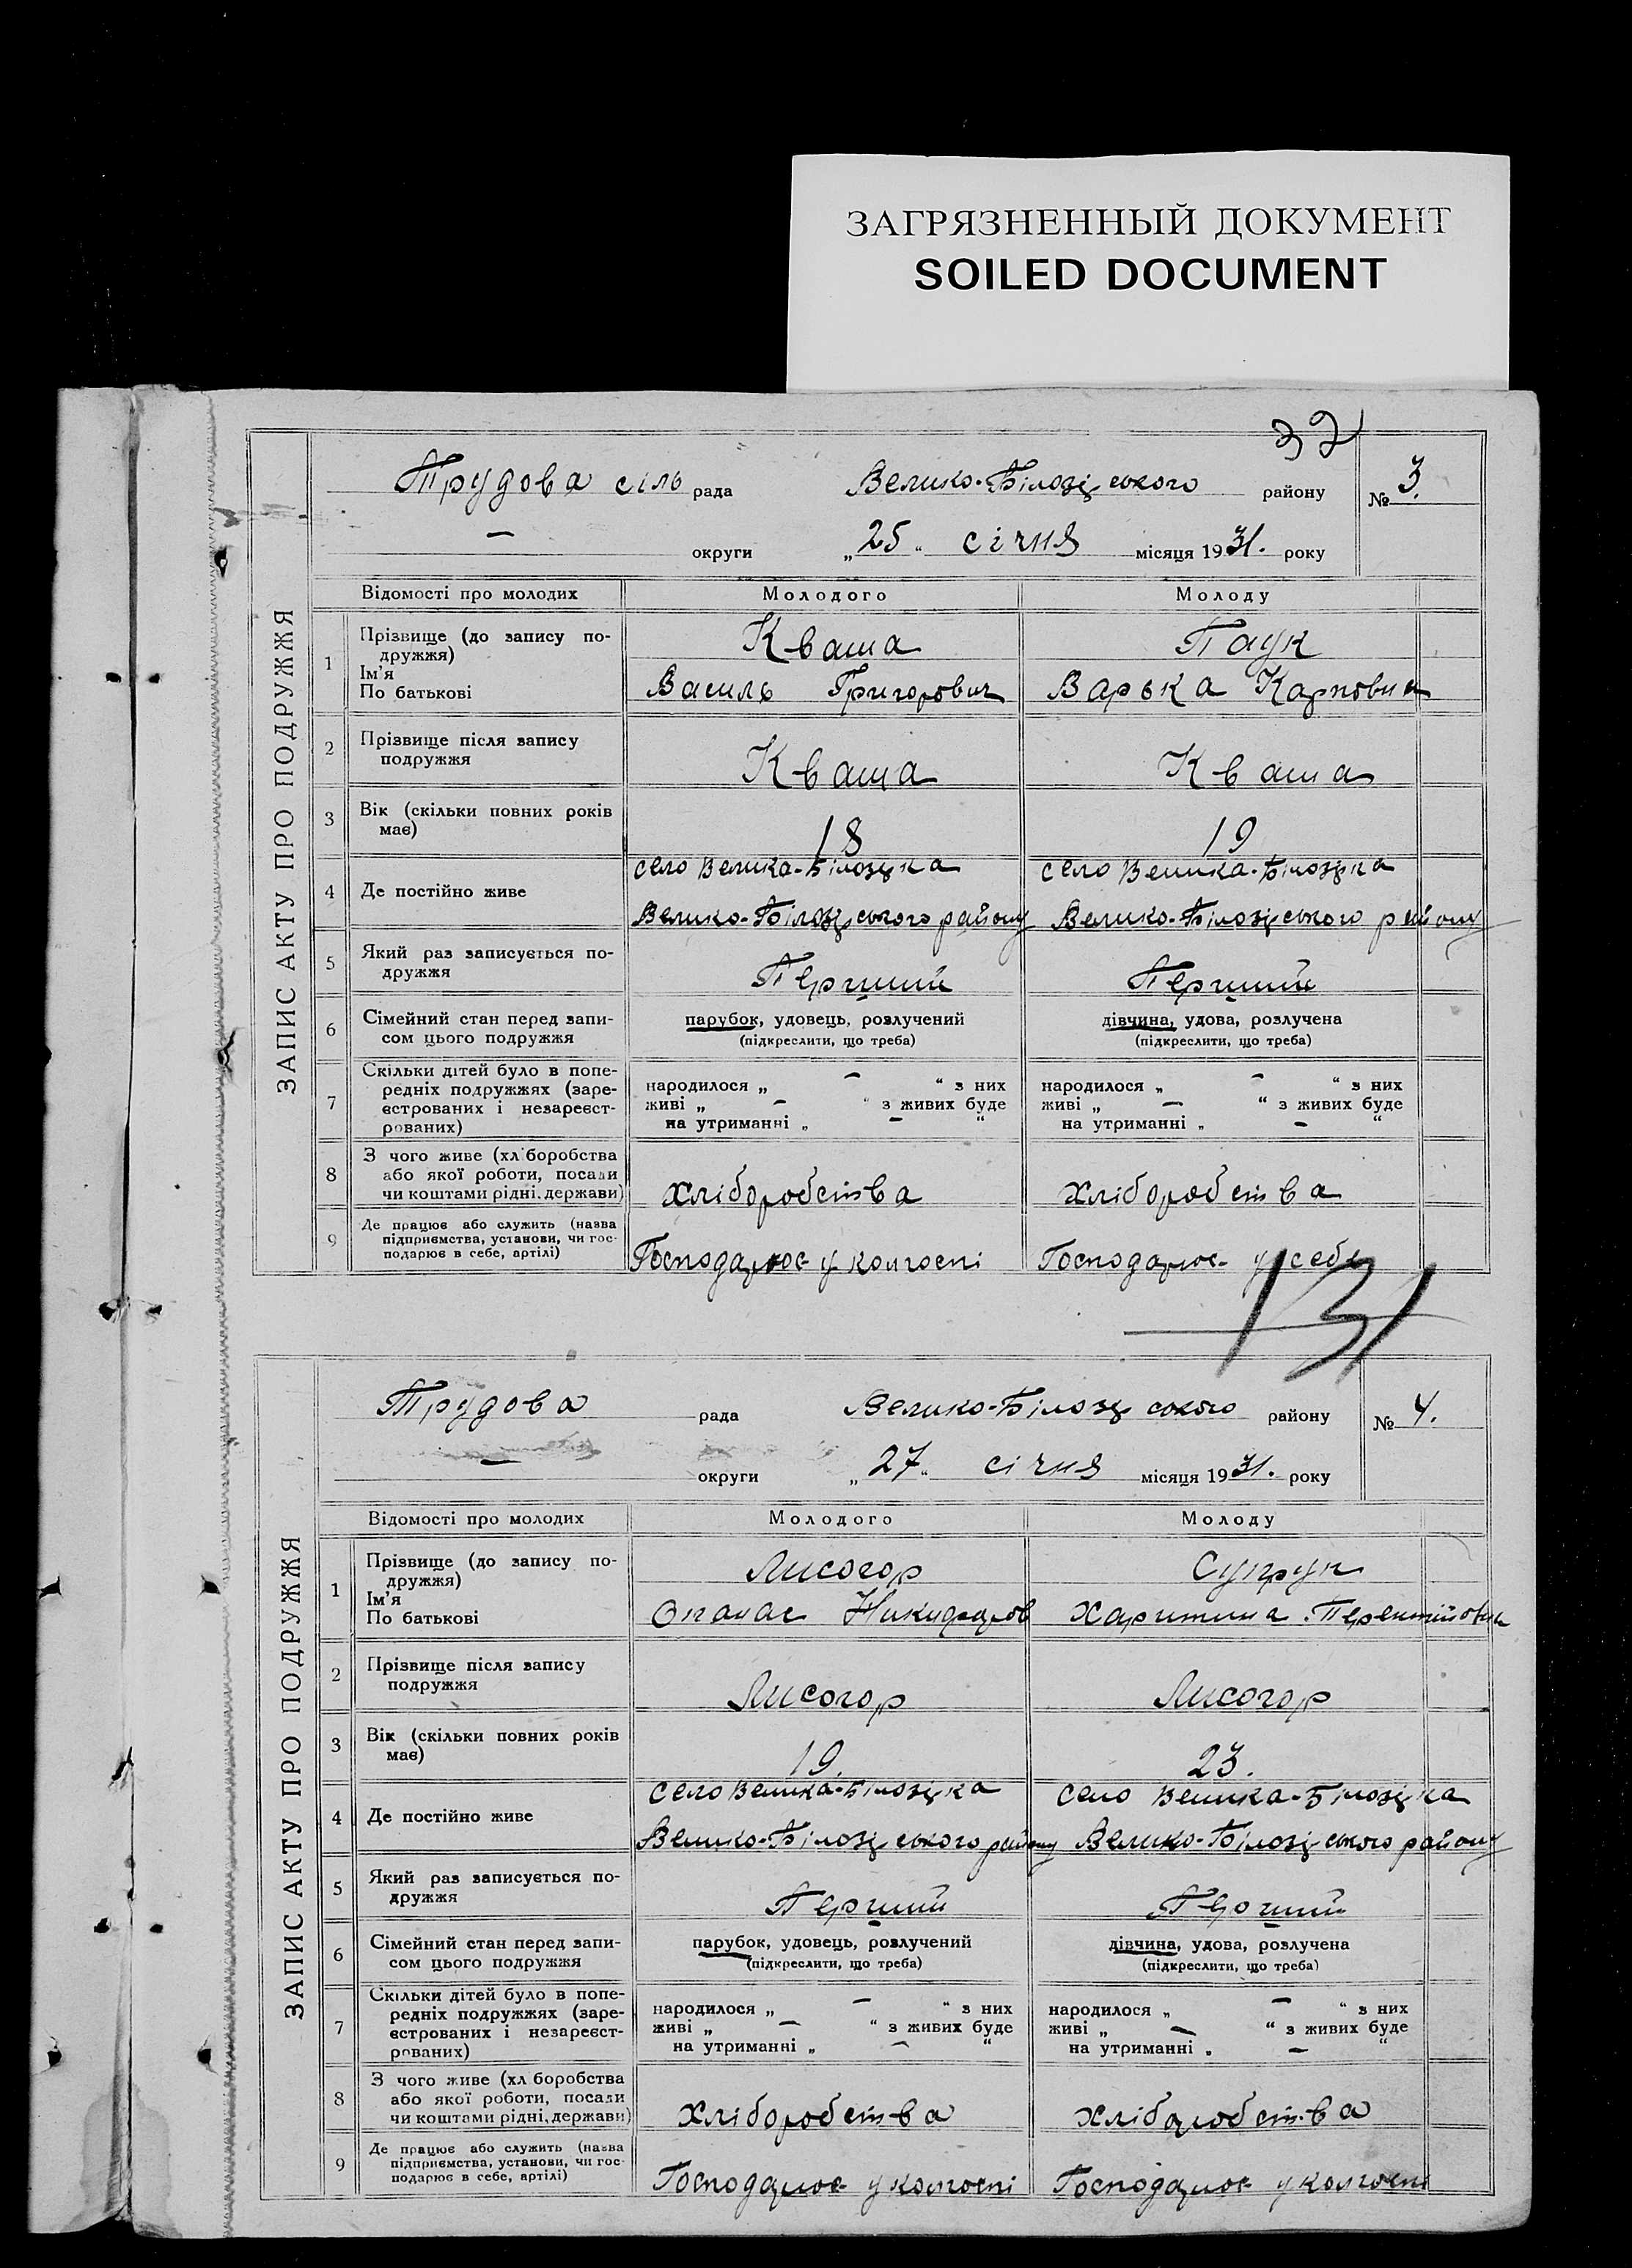 ЗАГРЯЗНЕННЫЙ ДОКУМЕНТ
SOILED DOCUMENT
32
ЗАПИС АКТУ ПРО ПОДРУЖЖЯ
Трудова сіль рада Велико-Білозірського району № 3.
— округи „25“ січня місяця 1931. року
Відомості про молодих Молодого Молоду
1 Прізвище (до запису по-
дружжя)
Ім'я
По батькові
Кваша Паук
Василь Григорович Варька Карповна
2 Прізвище після запису
подружжя
Кваша Кваша
3 Вік (скільки повних років
має)
18 19
4 Де постійно живе
село Велика-Білозірка село Велика-Білозірка
Велико-Білозірського району Велико-Білозірського району
5 Який раз записується по-
дружжя
Перший Перший
6 Сімейний стан перед запи-
сом цього подружжя
парубок, удовець, розлучений дівчина, удова, розлучена
(підкреслити, що треба) (підкреслити, що треба)
7 Скільки дітей було в попе-
редніх подружжях (заре-
єстрованих і незареєст-
рованих)
народилося „ — “ з них народилося „ — “ з них
живі „ — “ з живих буде живі „ — “ з живих буде
на утриманні „ — “ на утриманні „ — “
8 З чого живе (хл боробства
або якої роботи, посади
чи коштами рідні, держави)
хліборобства хліборобства
9 Де працює або служить (назва
підприємства, установи, чи гос-
подарює в себе, артілі)
Господарює у колгоспі Господарює у себе
131
ЗАПИС АКТУ ПРО ПОДРУЖЖЯ
Трудова рада Велико-Білозірського району № 4.
— округи „27“ січня місяця 1931. року
Відомості про молодих Молодого Молоду
1 Прізвище (до запису по-
дружжя)
Ім'я
По батькові
Лисогор Супрун
Опанас Никифоров Харитина Терентійовна
2 Прізвище після запису
подружжя
Лисогор Лисогор
3 Вік (скільки повних років
має)
19. 23.
4 Де постійно живе
село Велика-Білозірка село Велика-Білозірка
Велико-Білозірського району Велико-Білозірського району
5 Який раз записується по-
дружжя
Перший Перший
6 Сімейний стан перед запи-
сом цього подружжя
парубок, удовець, розлучений дівчина, удова, розлучена
(підкреслити, що треба) (підкреслити, що треба)
7 Скільки дітей було в попе-
редніх подружжях (заре-
єстрованих і незареєст-
рованих)
народилося „ — “ з них народилося „ — “ з них
живі „ — “ з живих буде живі „ — “ з живих буде
на утриманні „ — “ на утриманні „ — “
8 З чого живе (хл боробства
або якої роботи, посади
чи коштами рідні, держави)
хліборобства хліборобства
9 Де працює або служить (назва
підприємства, установи, чи гос-
подарює в себе, артілі)
Господарює у колгоспі Господарює у колгоспі